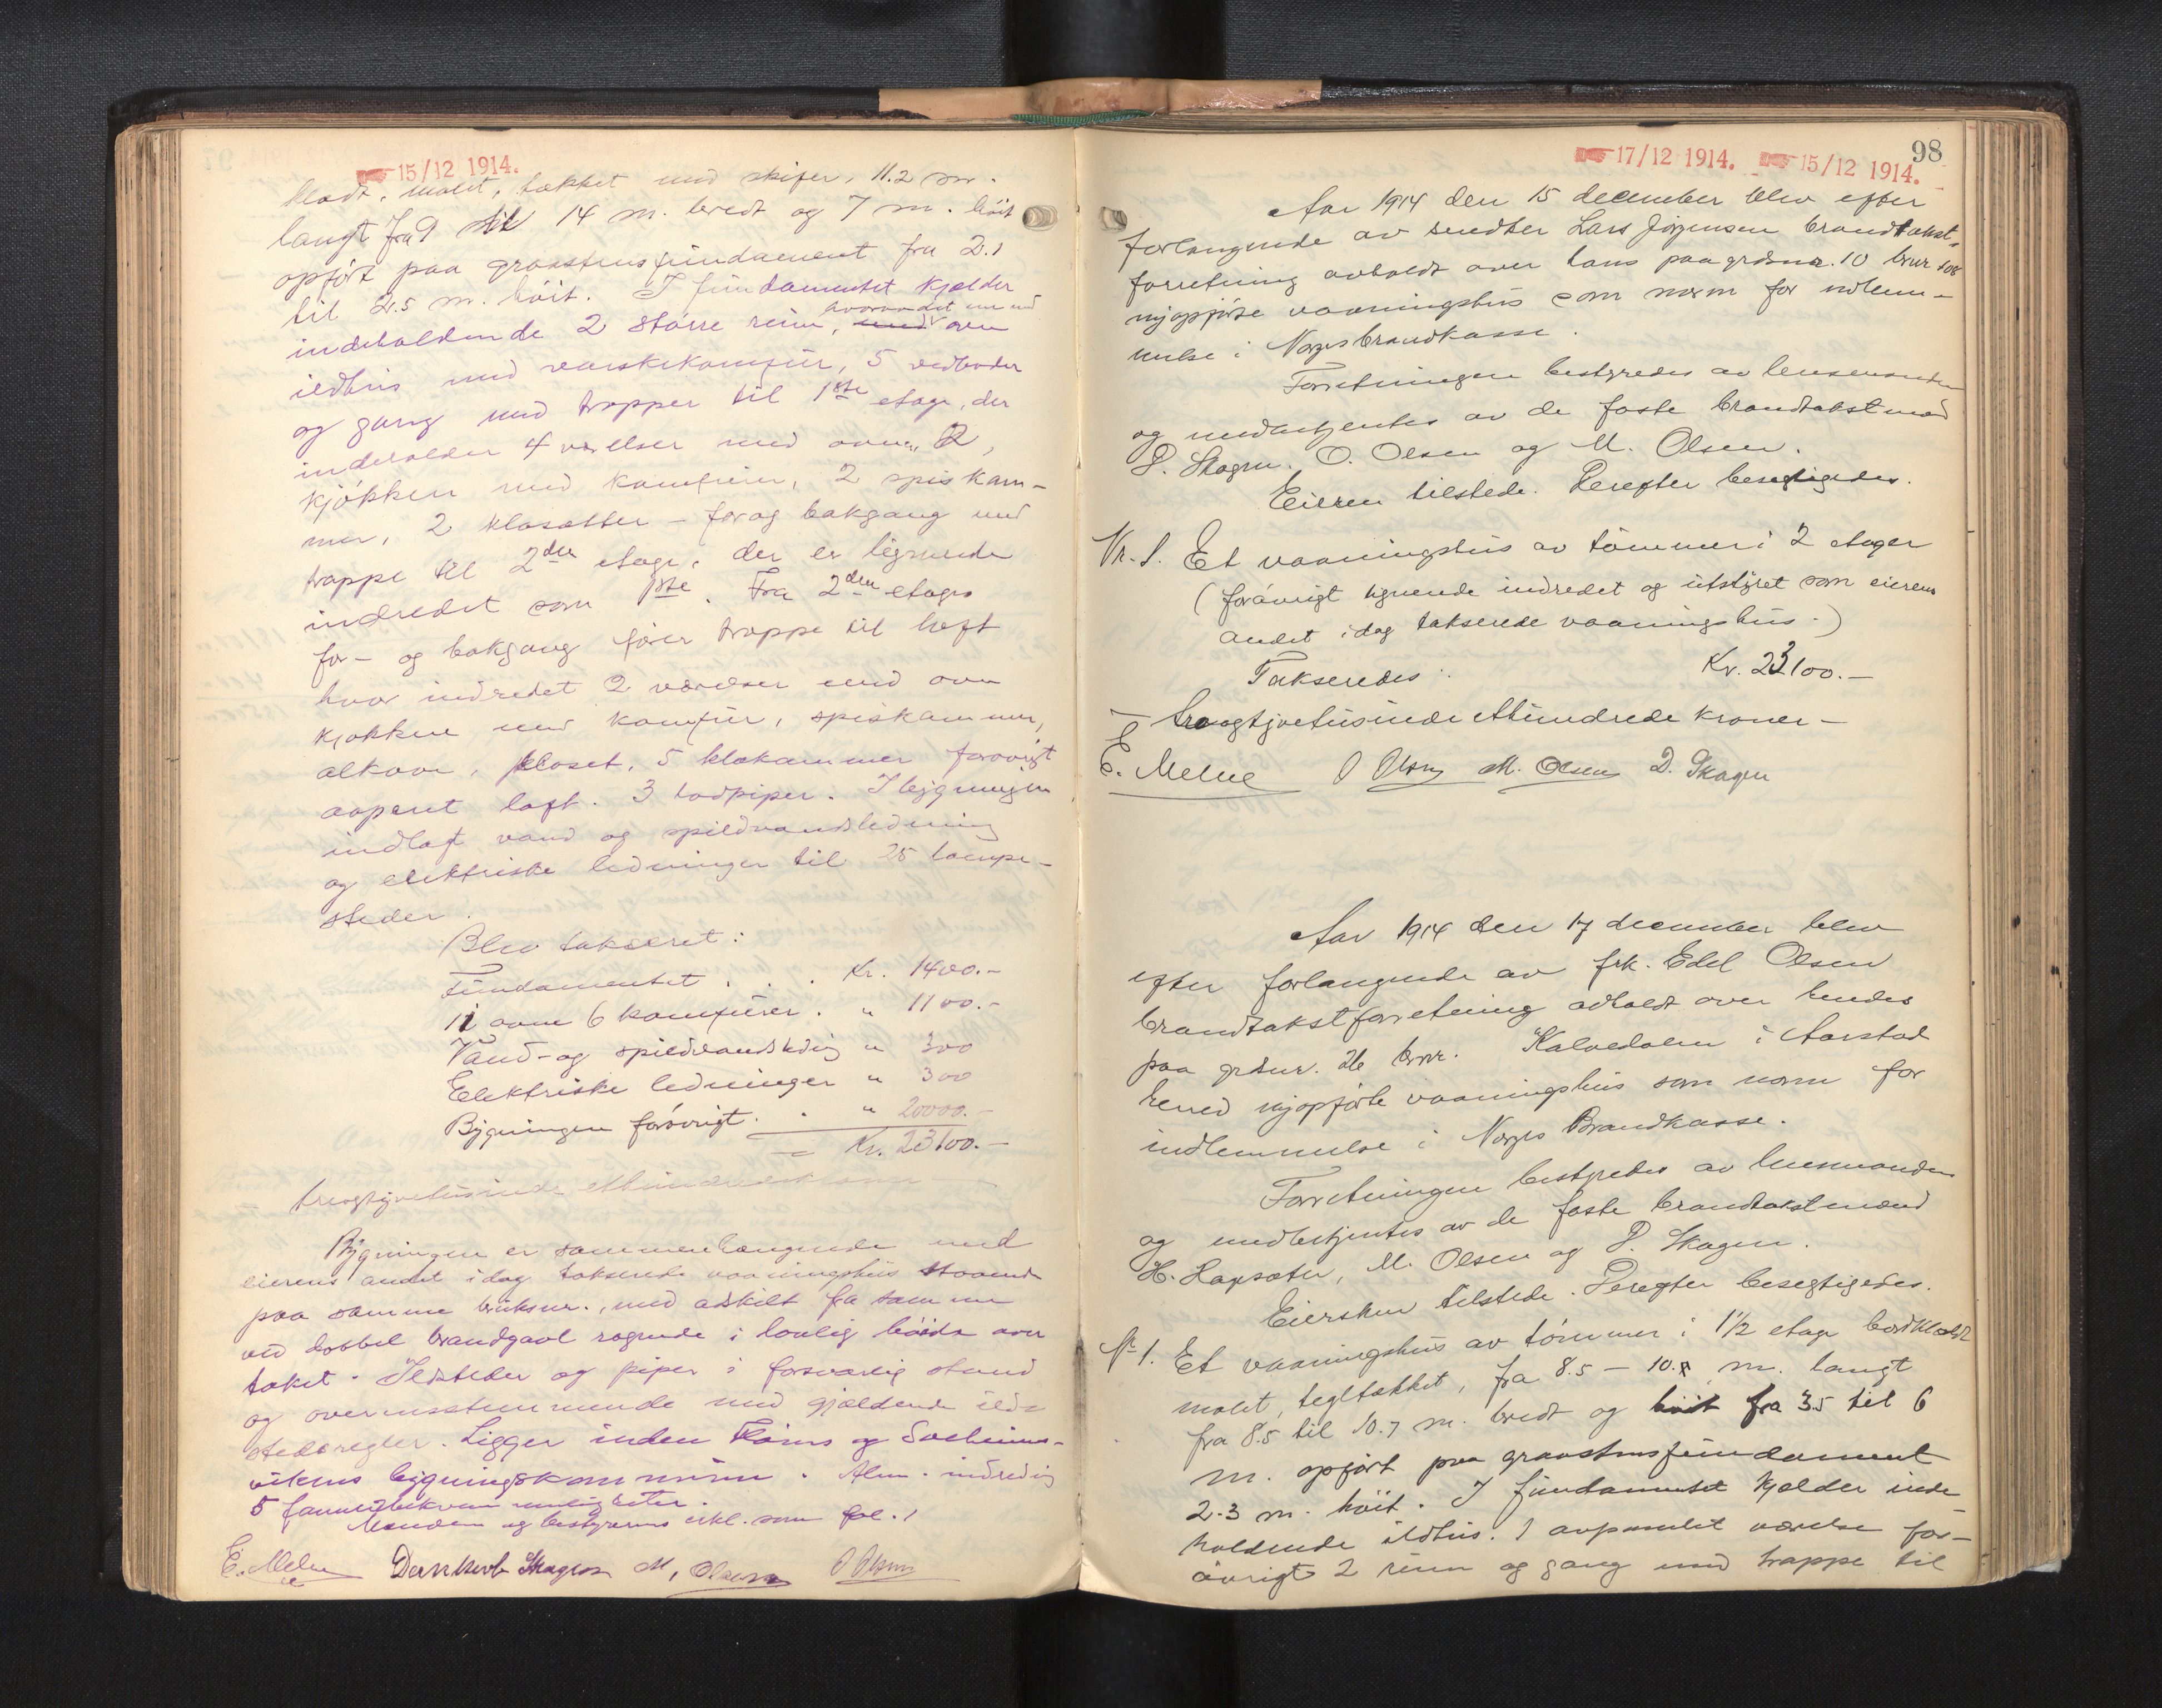 15/12 1914.
klædt, malet, tækket med skifer, 11.2 m.
langt fra 9 til 14 m. bredt og 7 m. høit
opført paa graastensfundament fra 2.1
til 2.5 m. høit. I fundamentet kjelder
indeholdende 2 større rum, hvorav det ene med ovn
ildhus med vaskekomfur, 5 vedboder
og gang med trapper til 1ste etage, der
indeholder 4 værelser med ovn, 2
kjøkken med komfurer, 2 spiskam-
mer, 2 klosetter – for og bakgang med
trappe til 2den etage, der er lignende
indredet som 1ste. Fra 2den etages
for- og bakgang fører trappe til loft
hvor indredet 2 værelser med ovn
kjøkken med komfur, spiskammer,
alkove, kloset, 5 klækammer forøvrigt
aapent loft. 3 rødpiper. I bygningen
indlagt vand og spildvandsledning
og elektriske ledninger til 25 lampe-
steder.
Blev takseret:
Fundamentet . . . Kr. 1400.-
11 ovne 6 komfurer . " 1100.-
Vand- og spildvandsledning " 300
Elektriske ledninger " 300
Bygningen forøvrigt . . " 20000.-
= Kr. 23100.-
treogtjvetusinde ethundrede kroner
Bygningen er sammenhængende med
eierens andet idag takserede vaaningshus staaende
paa samme bruksnr., med adskilt fra samme
ved dobbel brandgavl ragende i lovlig høide over
taket. Ildsteder og piper i forsvarlig stand
og overensstemmende med gjældende ild-
stedsregler. Ligger inden Krons og Solheims-
vikens bygningskommune. Alm. indredning
5 familiebekvemmeligheter.
Mændenes og bestyrerens erkl. som fol. 1
E. Melue Dankert Skagen M. Olsen O Olsen
98
17/12 1914. 15/12 1914.
Aar 1914 den 15 december blev efter
forlangende av snedker Lars Jørgensen brandtakst-
forretning avholdt over hans paa grdsnr. 10 brnr 108
nyopførte vaaningshus som norm for indlem-
melse i Norges brandkasse.
Forretningen bestyredes av lensmanden
og medbetjentes av de faste brandtakstmænd
D. Skagen, O. Olsen og M. Olsen.
Eieren tilstede. Derefter besegtigedes.
Nr. 1. Et vaaningshus av tømmer i 2 etager
(forøvrigt lignende indredet og utstyret som eierens
andet idag takserede vaaningshus.)
Takseredes: Kr. 23100.-
– treogtjvetusinde ethundrede kroner –
E. Melue O Olsen M. Olsen D. Skagen
Aar 1914 den 17 december blev
efter forlangende av frk. Edel Olsen
brandtakstforretning avholdt over hendes
paa grdsnr. 26 brnr. Kalvedalen i Aarstad
herred nyopførte vaaningshus som norm for
indlemmelse i Norges Brandkasse.
Forretningen bestyredes av lensmanden
og medbetjentes av de faste brandtakstmænd
H. Hopsæter, M. Olsen og D. Skagen.
Eiersken tilstede. Derefter besegtigedes.
Nr 1. Et vaaningshus av tømmer i 1½ etage bordklædt
malet, tegltækket, fra 8.5 – 10.8 m. langt
fra 8.5 til 10.7 m. bredt og høit fra 3.5 til 6
m. opført paa graastensfundament
2.3 m. høit. I fundamentet kjelder inde-
holdende ildhus. 1 avpanelet værelse for-
øvrigt 2 rum og gang med trappe til